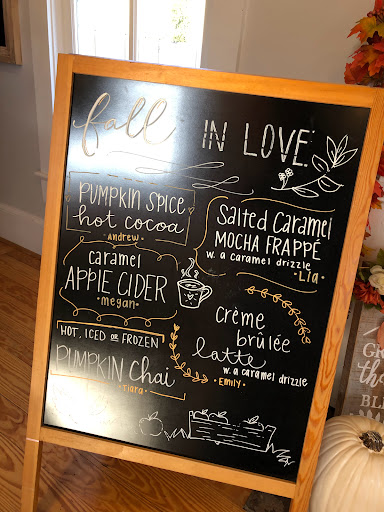 fall IN LOVE
PUMPKIN SPICE
hot cocoa
· Andrew ·
Salted Caramel
MOCHA FRAPPÉ
w. a caramel drizzle
· Lia ·
caramel
APPLE CIDER
· megan ·
HOT, ICED OR FROZEN
PUMPKIN Chai
· Tiara ·
crème
brûlée
latte
w. a caramel drizzle
· Emily ·